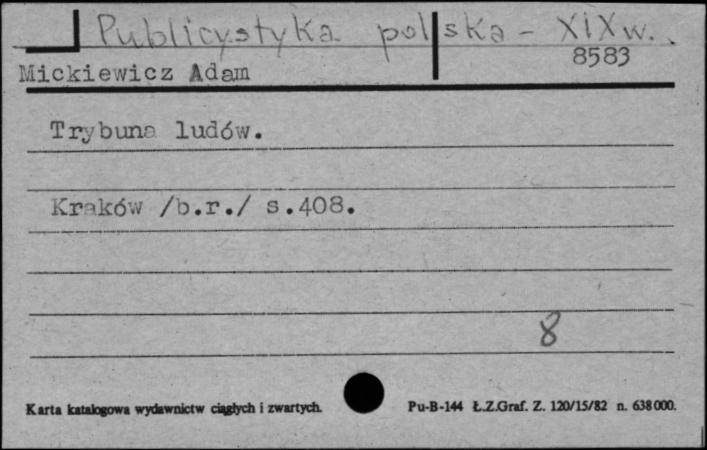 Publicystyka polska - XIX w.
8583
Mickiewicz Adam
Trybuna ludów.
Kraków /b.r./ s.408.
8
Karta katalogowa wydawnictw ciągłych i zwartych.
Pu-B-144 Ł.Z.Graf. Z. 120/15/82 n. 638000.